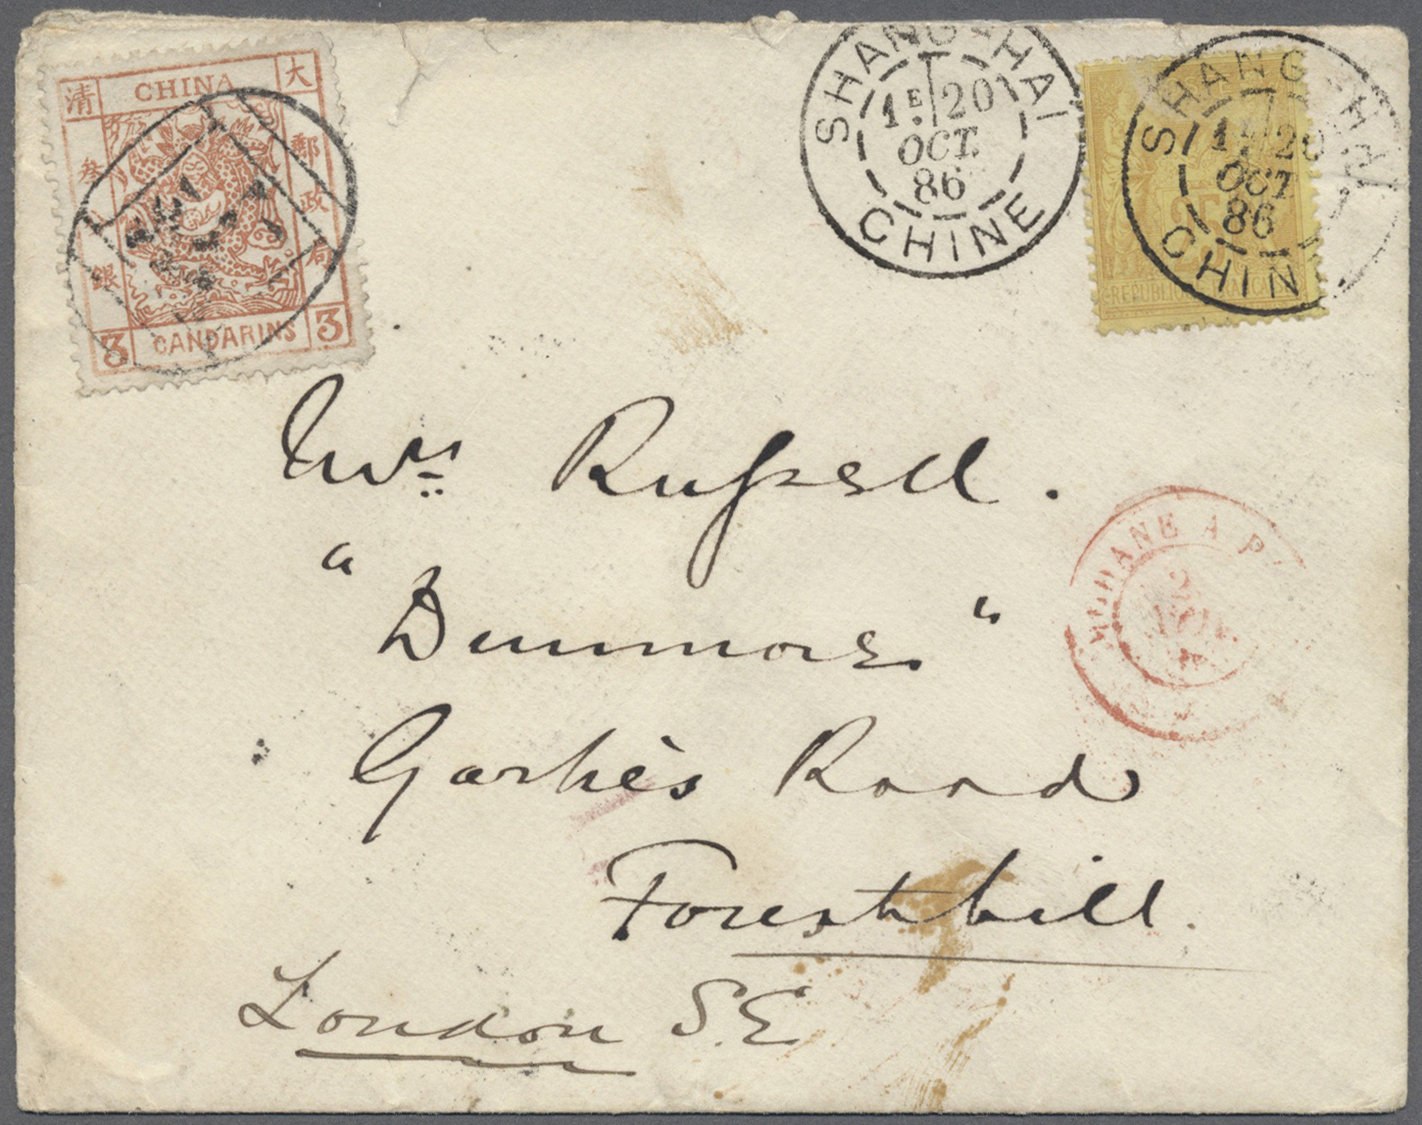 清 CHINA 大
郵政局
叁 銀
3 CANDARINS 3
SHANG-HAI
1E 20
OCT.
86
CHINE
SHANG-HAI
1E 20
OCT
86
CHINE
25
REPUBLIQUE
Mrs Russell.
"Dunmore"
Garlies Road
Foresthill.
London S.E
MODANE A P
2
NOV.